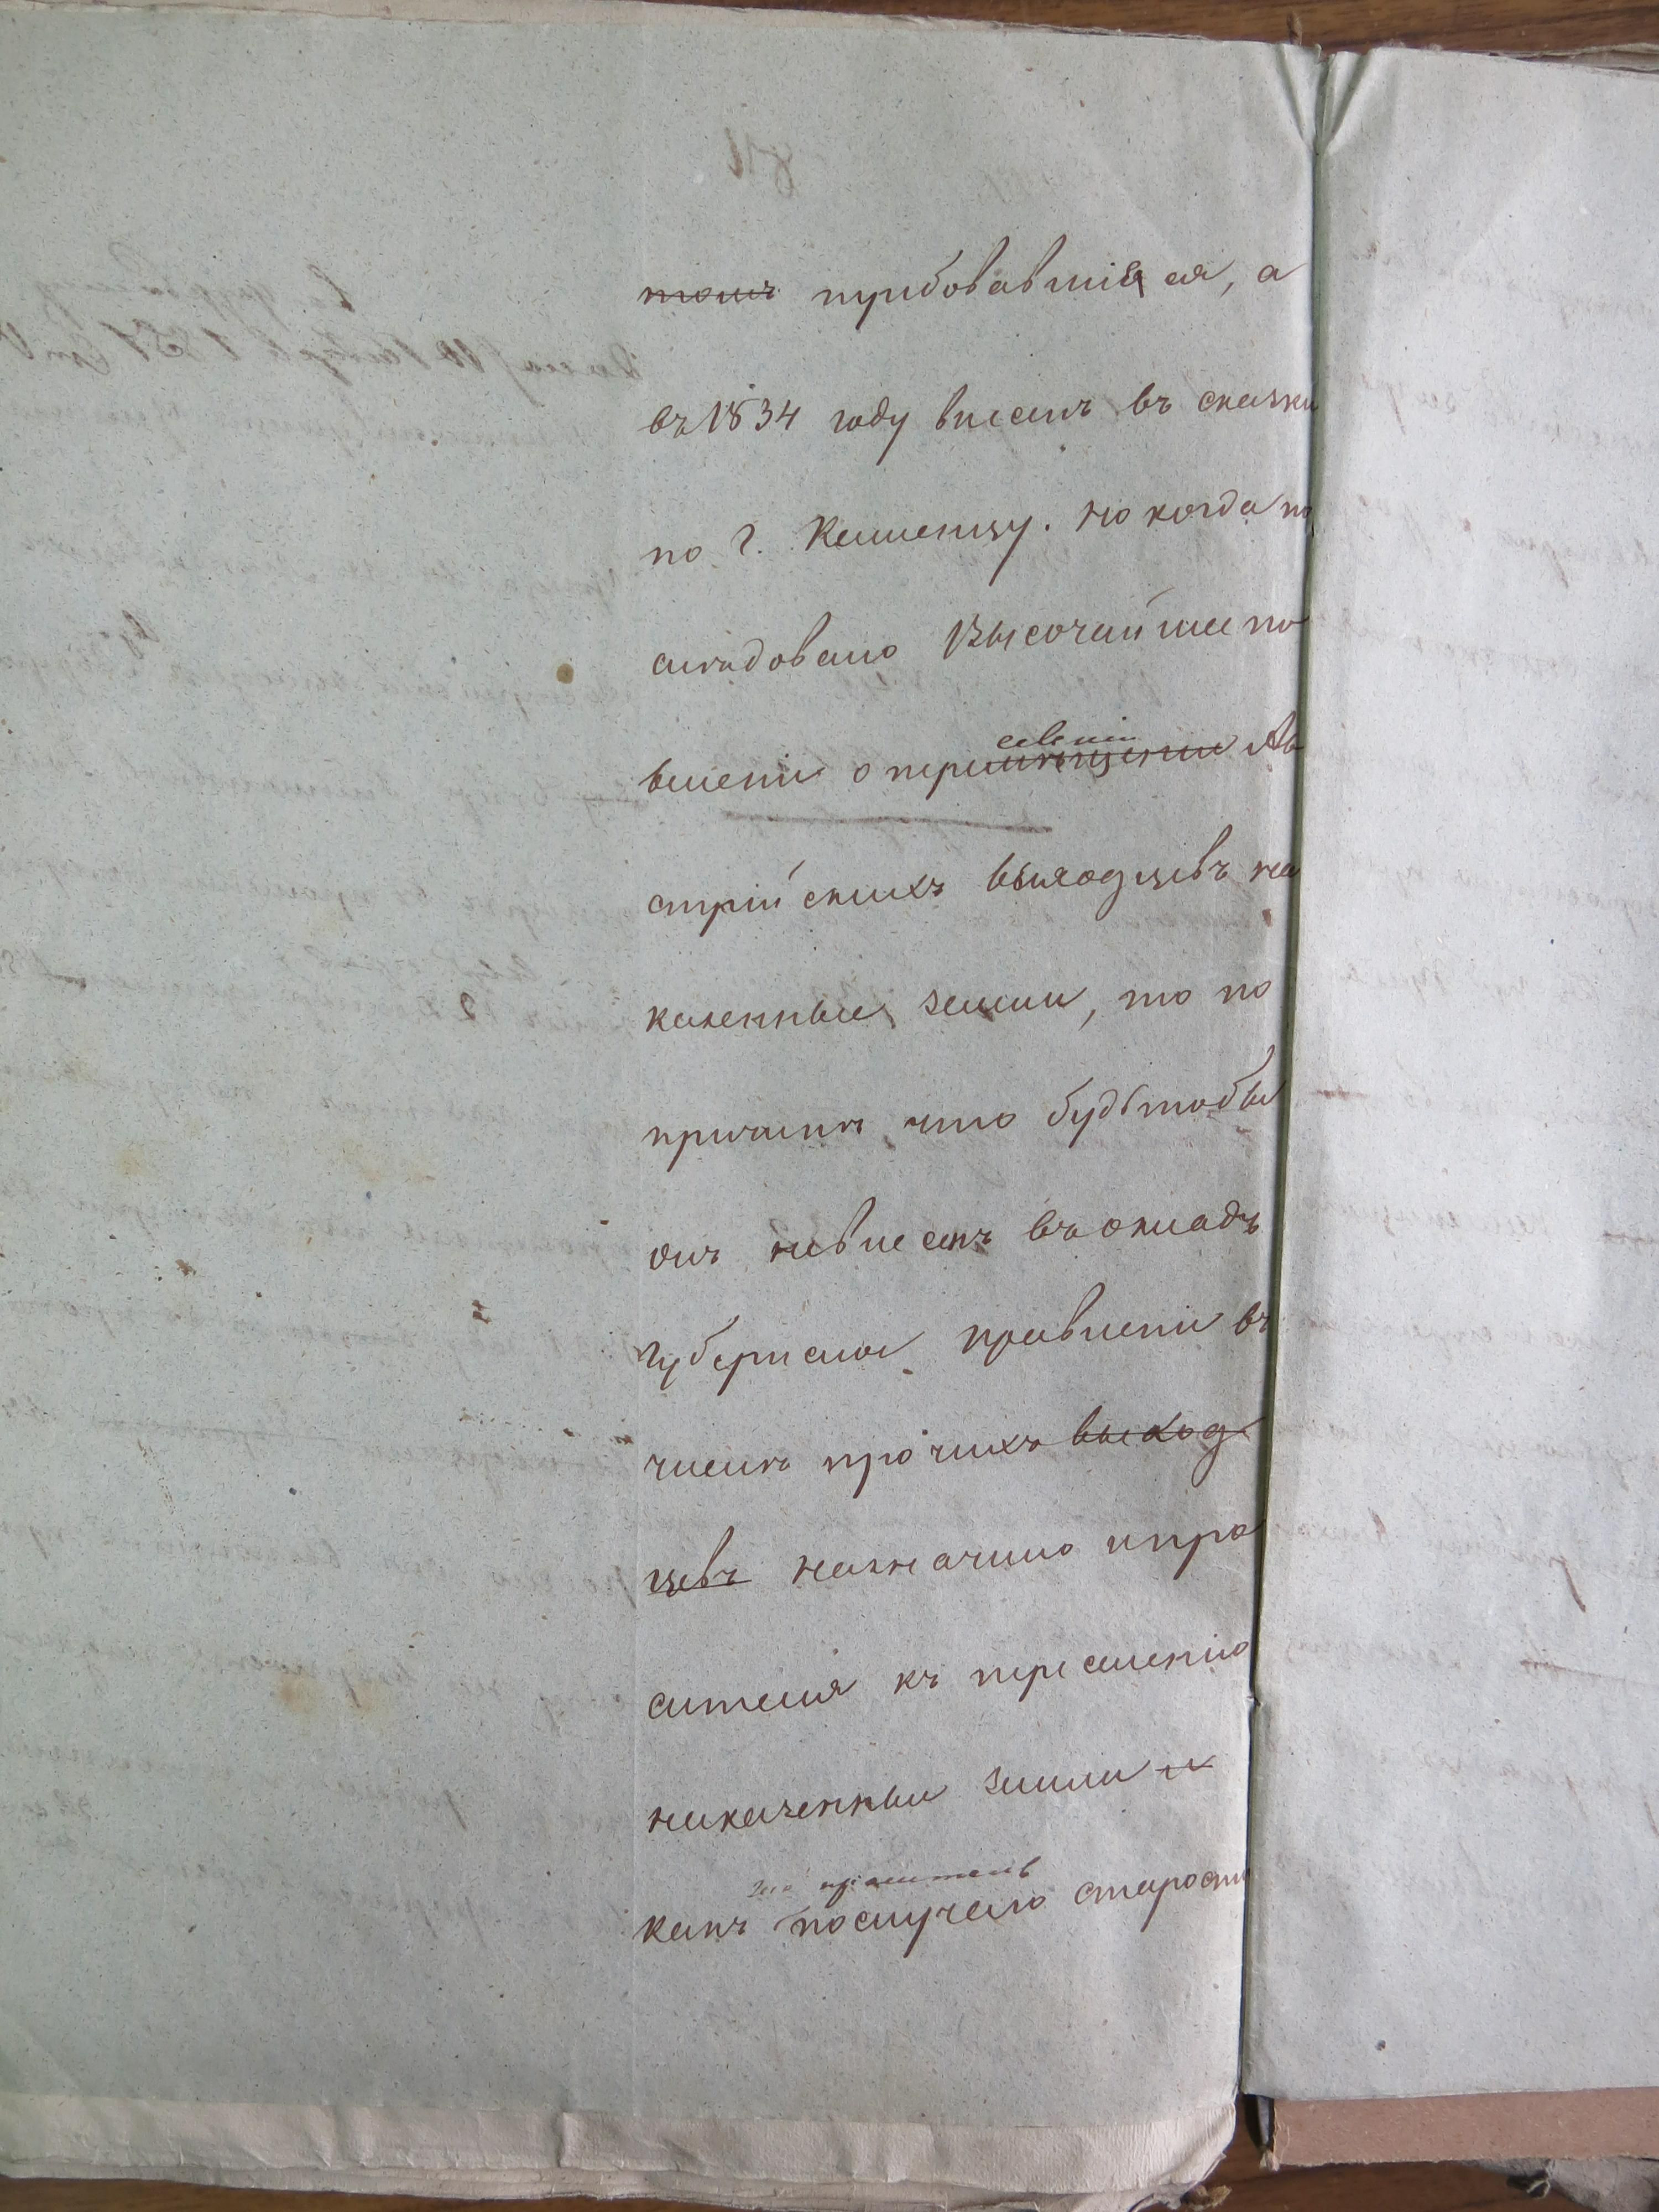 томъ требовавшіяся, а
въ 1834 году внесенъ въ сказки
по г. Каменцу. но когда по
слѣдовало Высочайшее по
селеніи
веленіе о перемѣщеніи Ав
стрійскихъ выходцевъ на
казенные земли, то по
причинѣ что будтобы
онъ невнесенъ въ окладъ
губернское правленіе въ
числѣ прочихъ выход
цевъ назначило и про
сителя къ переселенію
на казенныя земли и
какъ по случаю старости